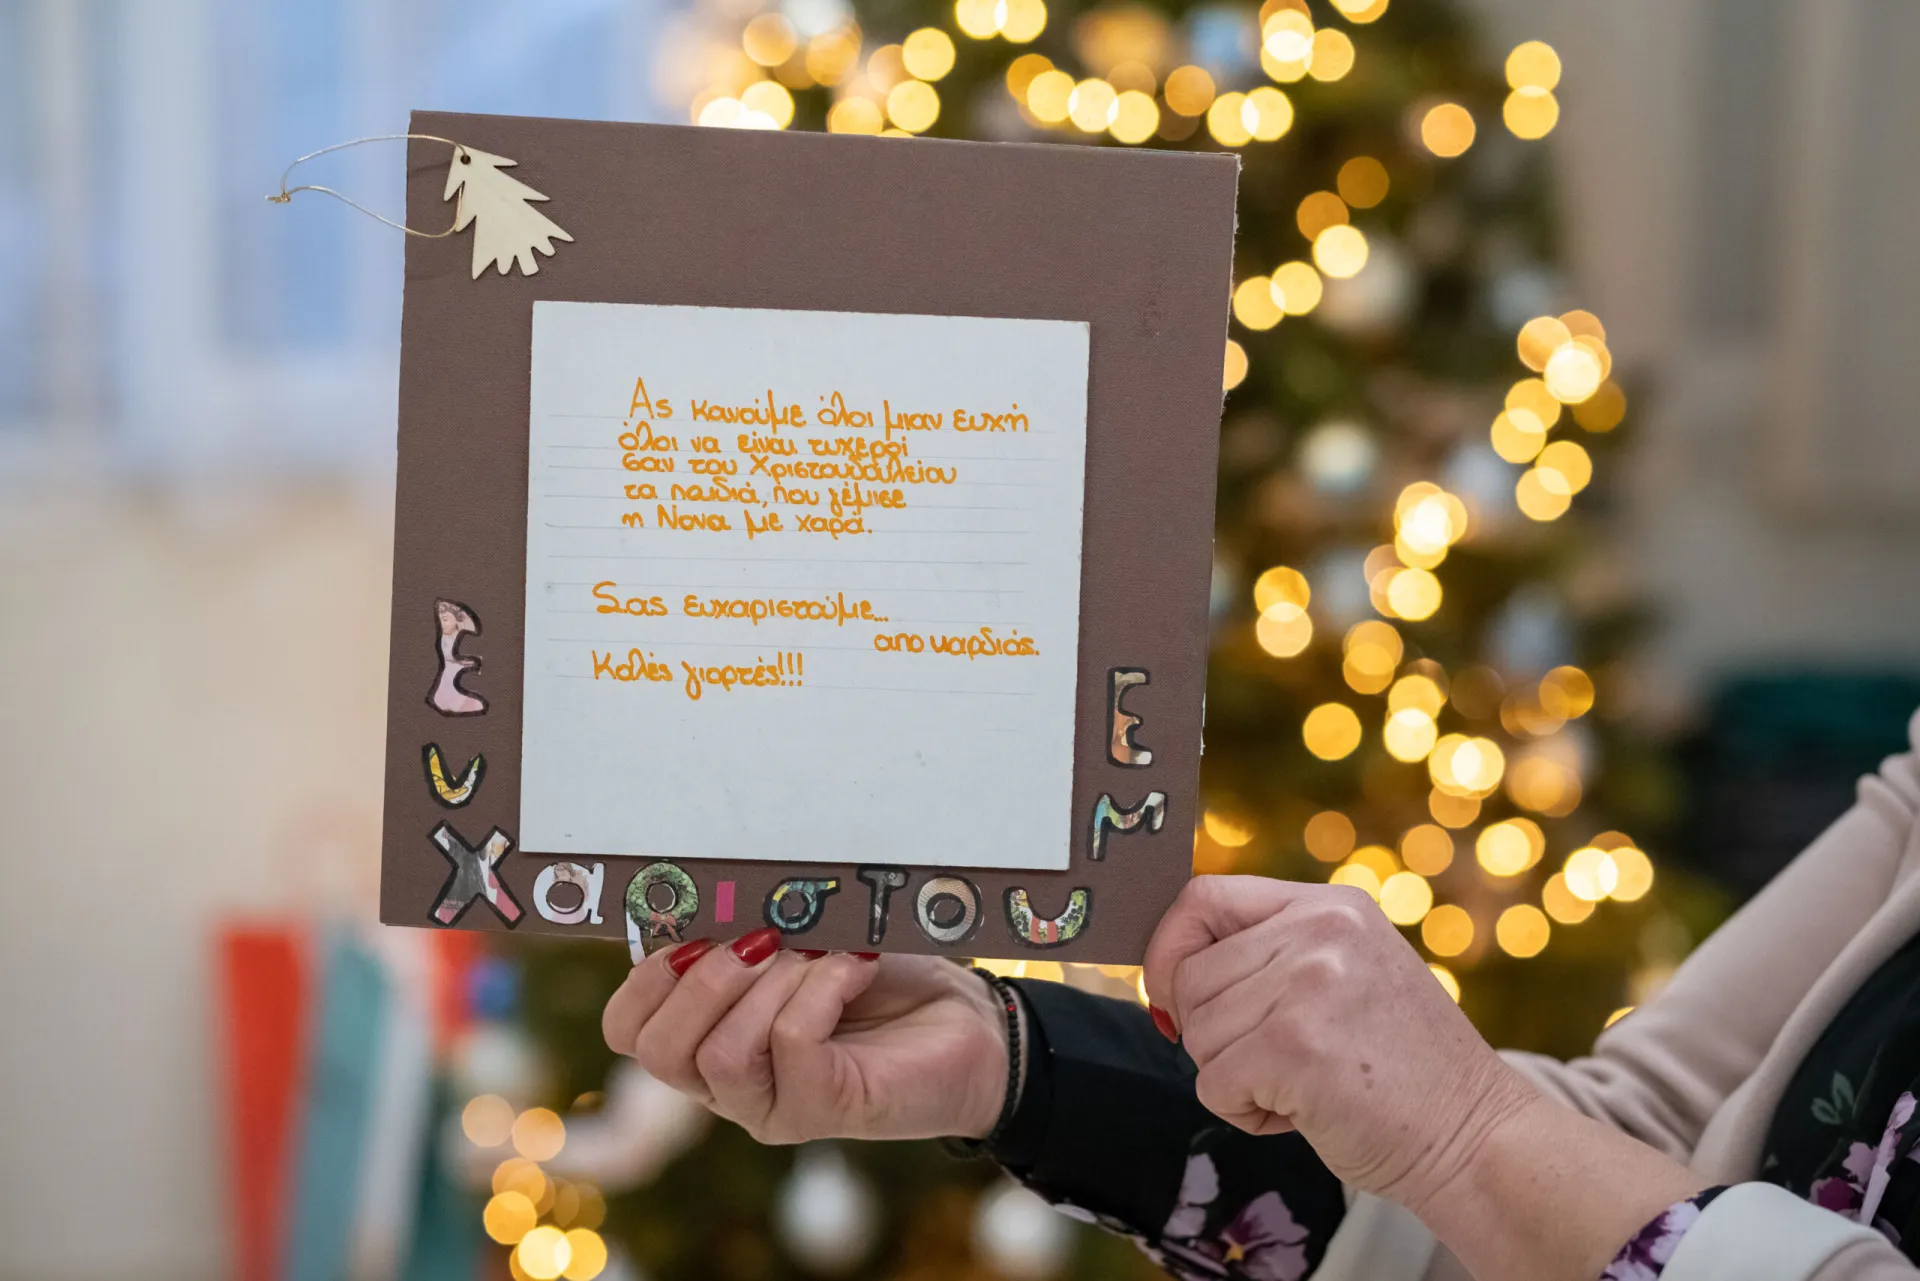 Ας κανούμε όλοι μιαν ευχή
όλοι να είναι τυχεροί
σαν του Χριστουδουλείου
τα παιδιά, που γέμισε
η Νονα με χαρά.
Σας ευχαριστούμε...
απο καρδιάς.
Καλές γιορτές!!!
ΕυχαριστουμΕ